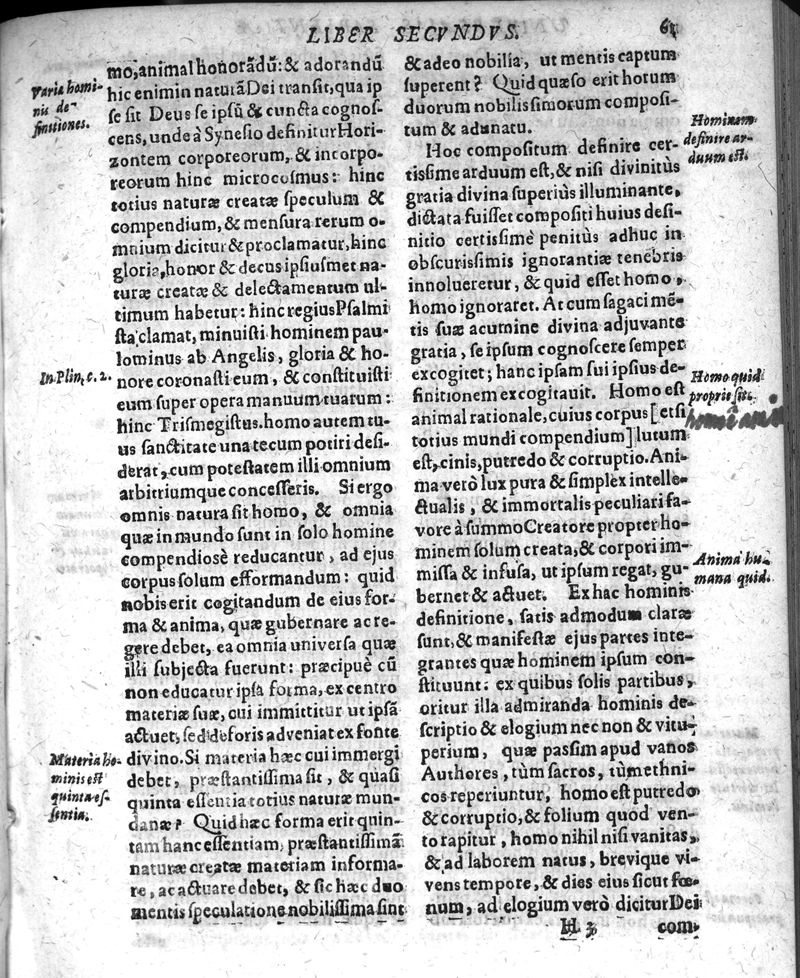 LIBER SECVNDVS.
61
Varia homi-
nis de-
finitiones.
mo, animal honorãdũ: & adorandũ
hic enim in naturã Dei transit, qua ip
se sit Deus se ipsũ & cuncta cognos-
cens, unde à Synesio definitur Hori-
zontem corporeorum, & incorpo-
reorum hinc microcosmus: hinc
totius naturæ creatæ speculum &
compendium, & mensura rerum o-
mnium dicitur & proclamatur, hinc
gloria, honor & decus ipsiusmet na-
turæ creatæ & delectamentum ul-
timum habetur: hinc regius Psalmi
sta clamat, minuisti hominem pau-
lominus ab Angelis, gloria & ho-
In Plin. c. 2.
nore coronasti eum, & constituisti
eum super opera manuum tuarum:
hinc Trismegistus. homo autem tu-
us sanctitate una tecum potiri desi-
derat, cum potestatem illi omnium
arbitriumque concesseris. Si ergo
omnis natura sit homo, & omnia
quæ in mundo sunt in solo homine
compendiosè reducantur, ad ejus
corpus solum efformandum: quid
nobis erit cogitandum de eius for-
ma & anima, quæ gubernare ac re-
gere debet, ea omnia universa quæ
illi subjecta fuerunt: præcipuè cũ
non educatur ipsa forma, ex centro
materiæ suæ, cui immittitur ut ipsã
actuet, sed deforis adveniat ex fonte
Materia ho-
minis est
quinta es-
sentia.
divino. Si materia hæc cui immergi
debet, præstantissima sit, & quasi
quinta essentia totius naturæ mun-
danæ? Quid hæc forma erit quin-
tam hanc essentiam, præstantissimã
naturæ creatæ materiam informa-
re, ac actuare debet, & sic hæc duo
mentis speculatione nobilissima sint
& adeo nobilia, ut mentis captum
superent? Quid quæso erit horum
duorum nobilissimorum composi-
tum & adunatu.
Hominem
definire ar-
duum est.
Hoc compositum definire cer-
tissime arduum est, & nisi divinitùs
gratia divina superiùs illuminante,
dictata fuisset compositi huius defi-
nitio certissimè penitùs adhuc in
obscurissimis ignorantiæ tenebris
innolueretur, & quid esset homo,
homo ignoraret. At cum sagaci mẽ-
tis suæ acumine divina adjuvante
gratia, se ipsum cognoscere semper
excogitet; hanc ipsam sui ipsius de-
Homo quid
proprie sit.
finitionem excogitauit. Homo est
animal rationale, cuius corpus [etsi
totius mundi compendium] lutum
est, cinis, putredo & corruptio. Ani-
ma verò lux pura & simplex intelle-
ctualis, & immortalis peculiari fa-
vore à summo Creatore propter ho-
minem solum creata, & corpori im-
Anima hu-
mana quid.
missa & infusa, ut ipsum regat, gu-
bernet & actuet. Ex hac hominis
definitione, satis admodum claræ
sunt, & manifestæ ejus partes inte-
grantes quæ hominem ipsum con-
stituunt: ex quibus solis partibus,
oritur illa admiranda hominis de-
scriptio & elogium nec non & vitu-
perium, quæ passim apud vanos
Authores, tùm sacros, tùm ethni-
cos reperiuntur, homo est putredo
& corruptio, & folium quod ven-
to rapitur, homo nihil nisi vanitas,
& ad laborem natus, brevique vi-
vens tempore, & dies eius sicut fœ-
num, ad elogium verò dicitur Dei
H 3
com-